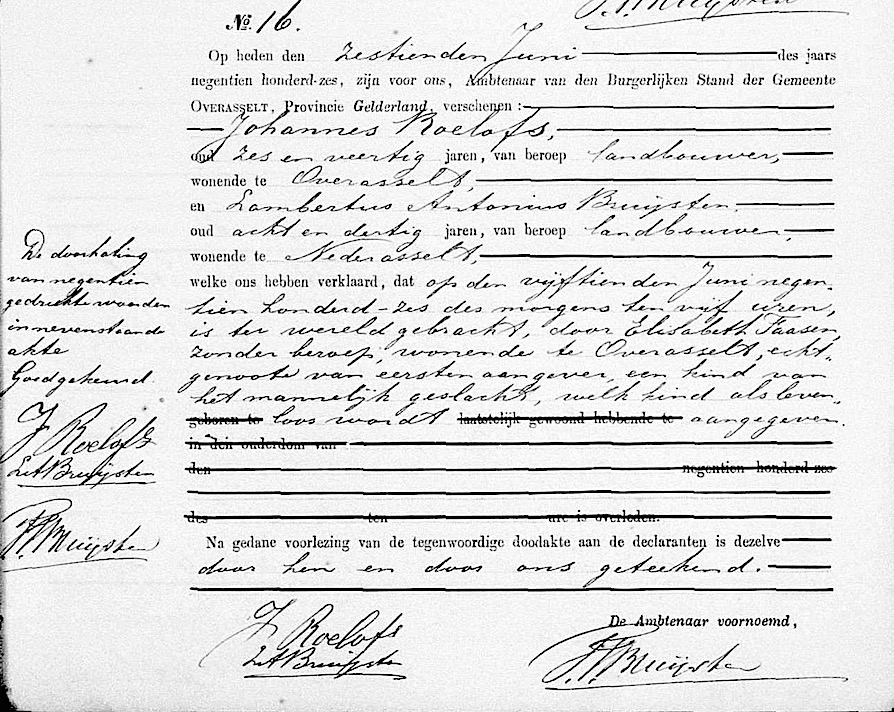 No. 16.
Op heden den zestienden Juni des jaars
negentien honderd-zes, zijn voor ons, Ambtenaar van den Burgerlijken Stand der Gemeente
OVERASSELT, Provincie Gelderland, verschenen :
Johannes Roelofs,
oud zes en veertig jaren, van beroep landbouwer,
wonende te Overasselt,
en Lambertus Antonius Bruijsten
oud acht en dertig jaren, van beroep landbouwer,
wonende te Nederasselt,
welke ons hebben verklaard, dat op den vijftienden Juni negen-
tien honderd-zes des morgens ten vijf uren,
is ter wereld gebracht, door Elisabeth Faasen
zonder beroep, wonende te Overasselt, echt-
genoote van eersten aangever, een kind van
het mannelijk geslacht, welk kind als leven-
geboren te loos wordt laatstelijk gewoond hebbende te aangegeven.
in den ouderdom van
den negentien honderd-zes
des ten ure is overleden.
Na gedane voorlezing van de tegenwoordige doodakte aan de declaranten is dezelve
door hen en door ons geteekend.
De Ambtenaar voornoemd,
J Roelofs
LA Bruijsten
Bruijsten
De doorhaling
van negentien
gedrukte woorden
in nevenstaande
akte
Goedgekeurd.
J Roelofs
LA Bruijsten
Bruijsten